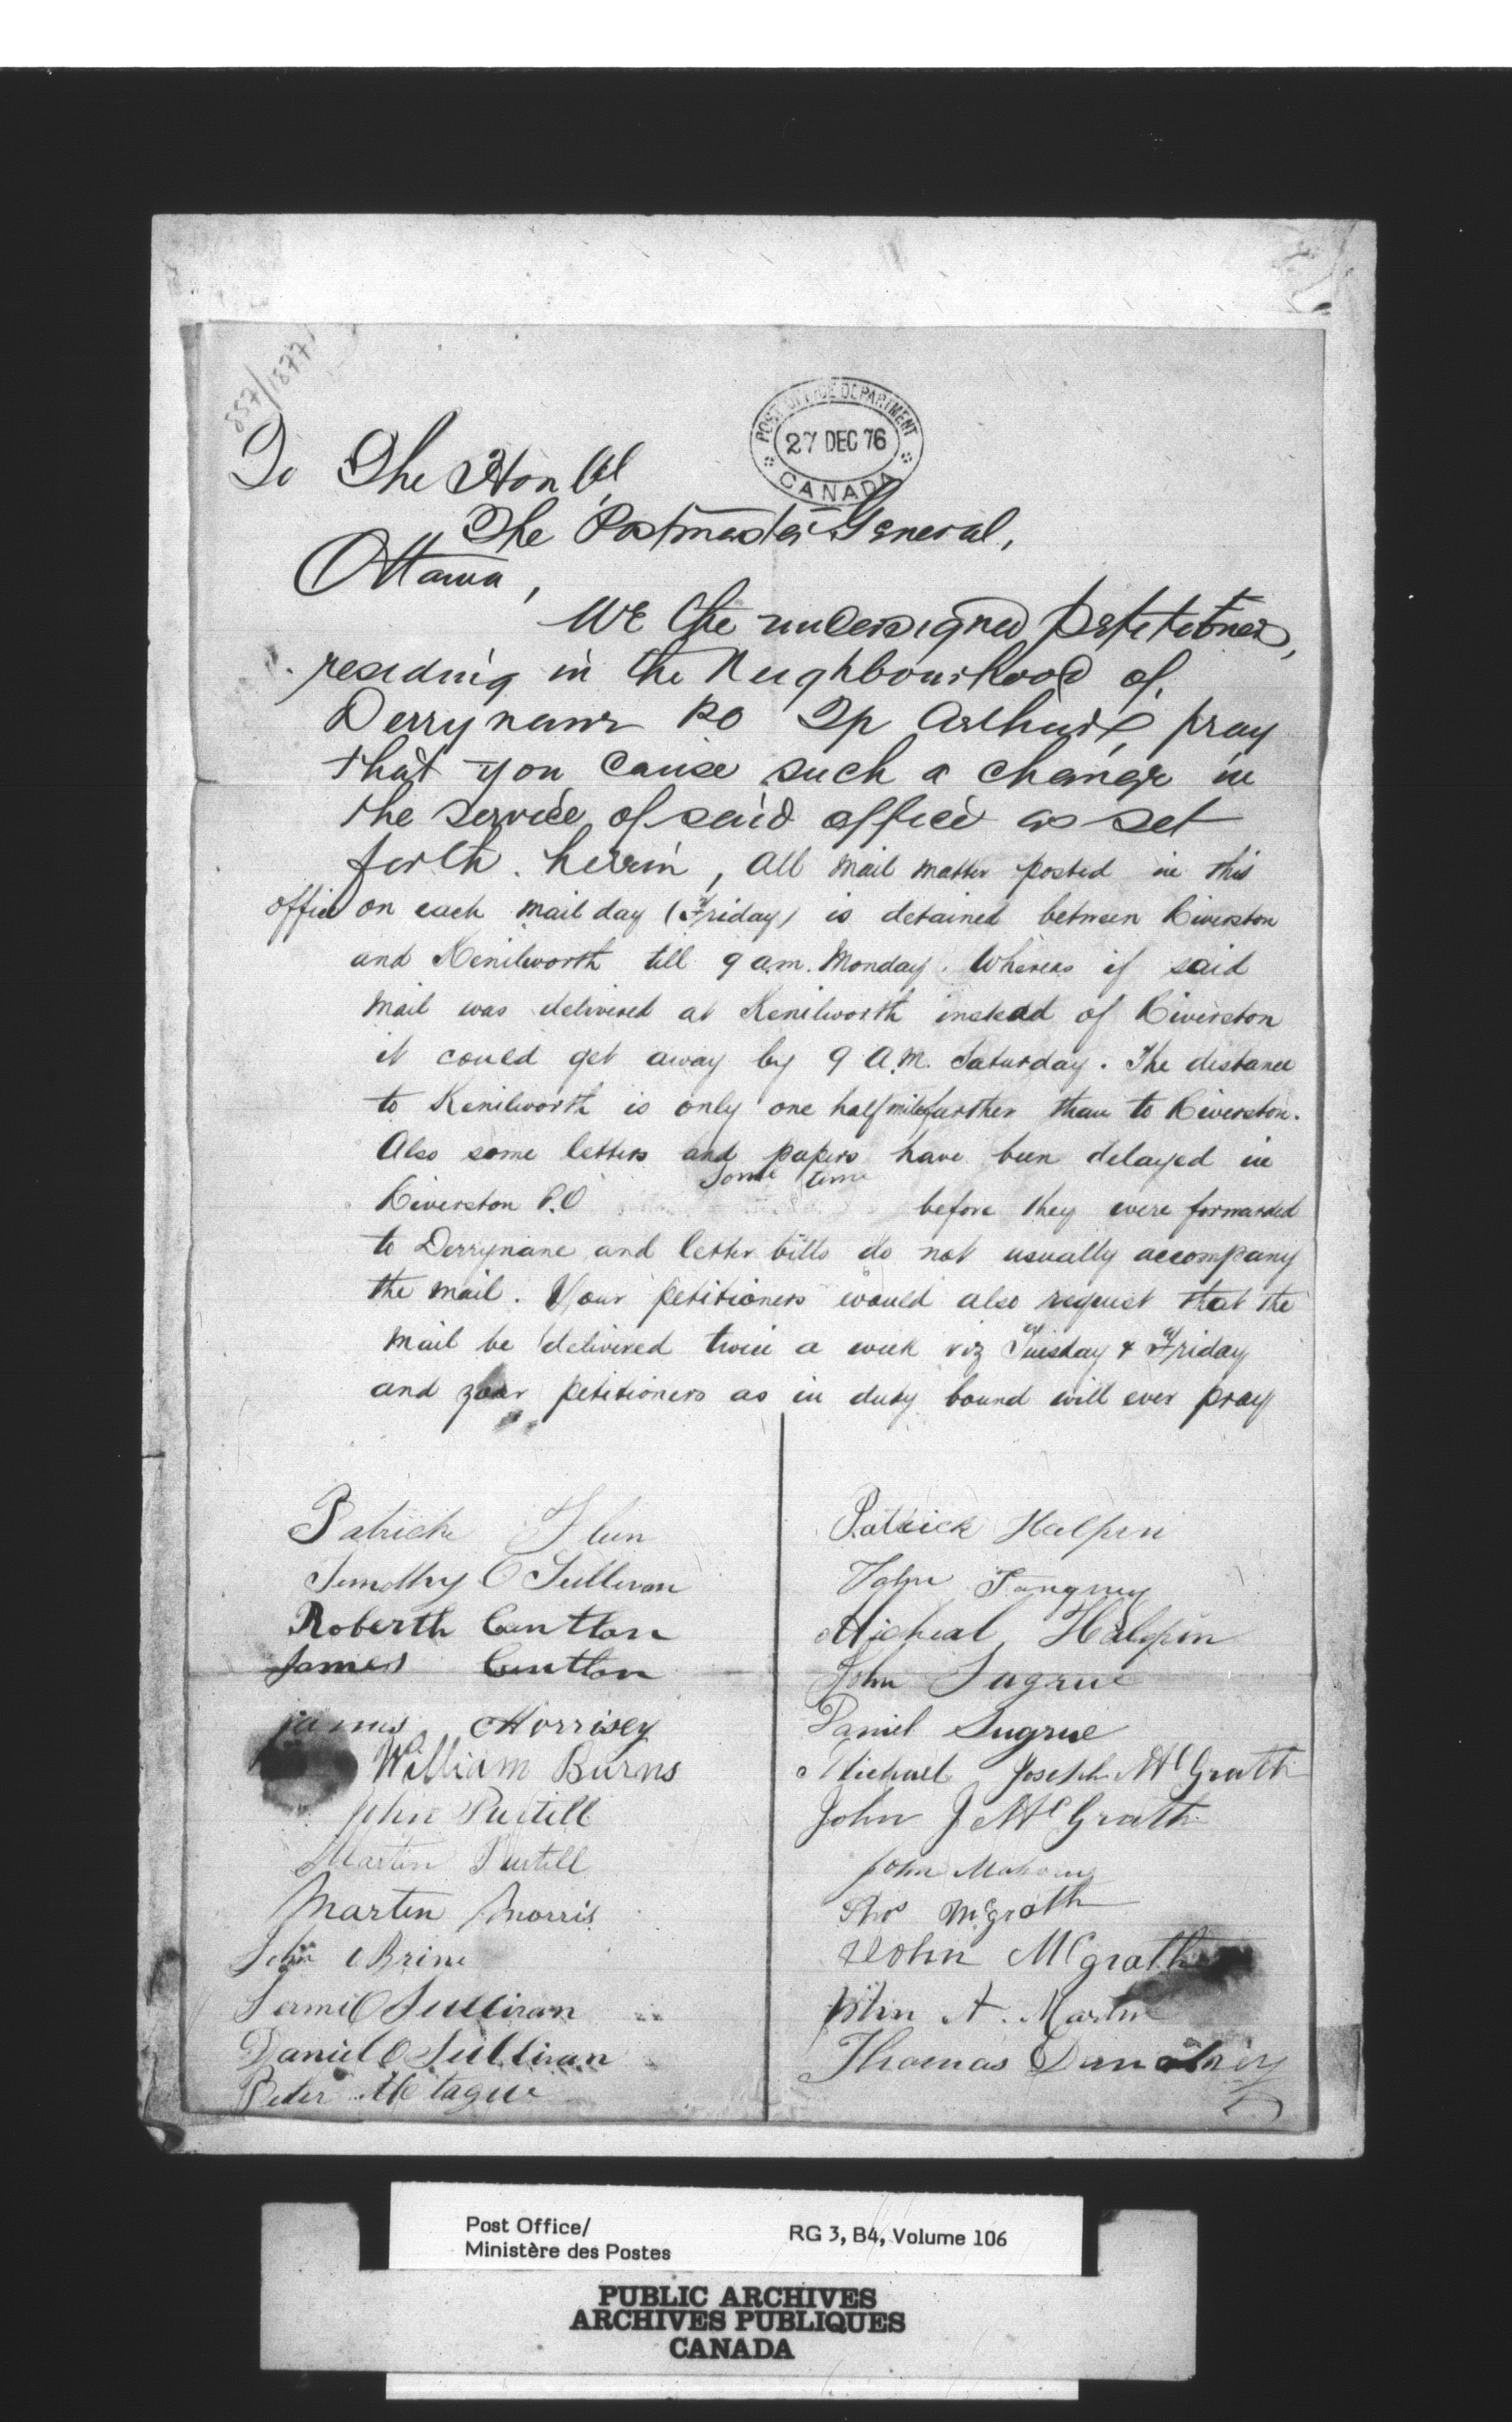 857/1877
POST OFFICE DEPARTMENT
27 DEC 76
CANADA
To The Honbl
The Postmaster General,
Ottawa,
We the undersigned petitioners,
residing in the Neighbourhood of
Derrynane PO Tp Arthur, pray
that you cause such a change in
the service of said office as set
forth herein, All mail matter posted in this
office on each mail day (Friday) is detained between Riverston
and Kenilworth till 9 a.m. Monday. Whereas if said
mail was delivered at Kenilworth instead of Riverston
it could get away by 9 A.M. Saturday. The distance
to Kenilworth is only one half mile further than to Riverston.
Also some letters and papers have been delayed in
Riverston P.O some time before they were forwarded
to Derrynane and letter bills do not usually accompany
the mail. Your petitioners would also request that the
mail be delivered twice a week viz Tuesday & Friday
and your petitioners as in duty bound will ever pray
Patrick Flin
Timothy O Sullivan
Roberth
James
James Morrisey
William Burns
John Purtill
Martin Purtill
Martin Morris
John OBrine
O Sullivan
Daniel O Sullivan
Peter Mc tague
Patrick Halpin
John Tangney
Micheal Halpin
John Sugrue
Daniel Sugrue
Michael Joseph McGrath
John J McGrath
John Mahony
Thos McGrath
John McGrath
John A. Martin
Thomas
Post Office/
Ministère des Postes
RG 3, B4, Volume 106
PUBLIC ARCHIVES
ARCHIVES PUBLIQUES
CANADA